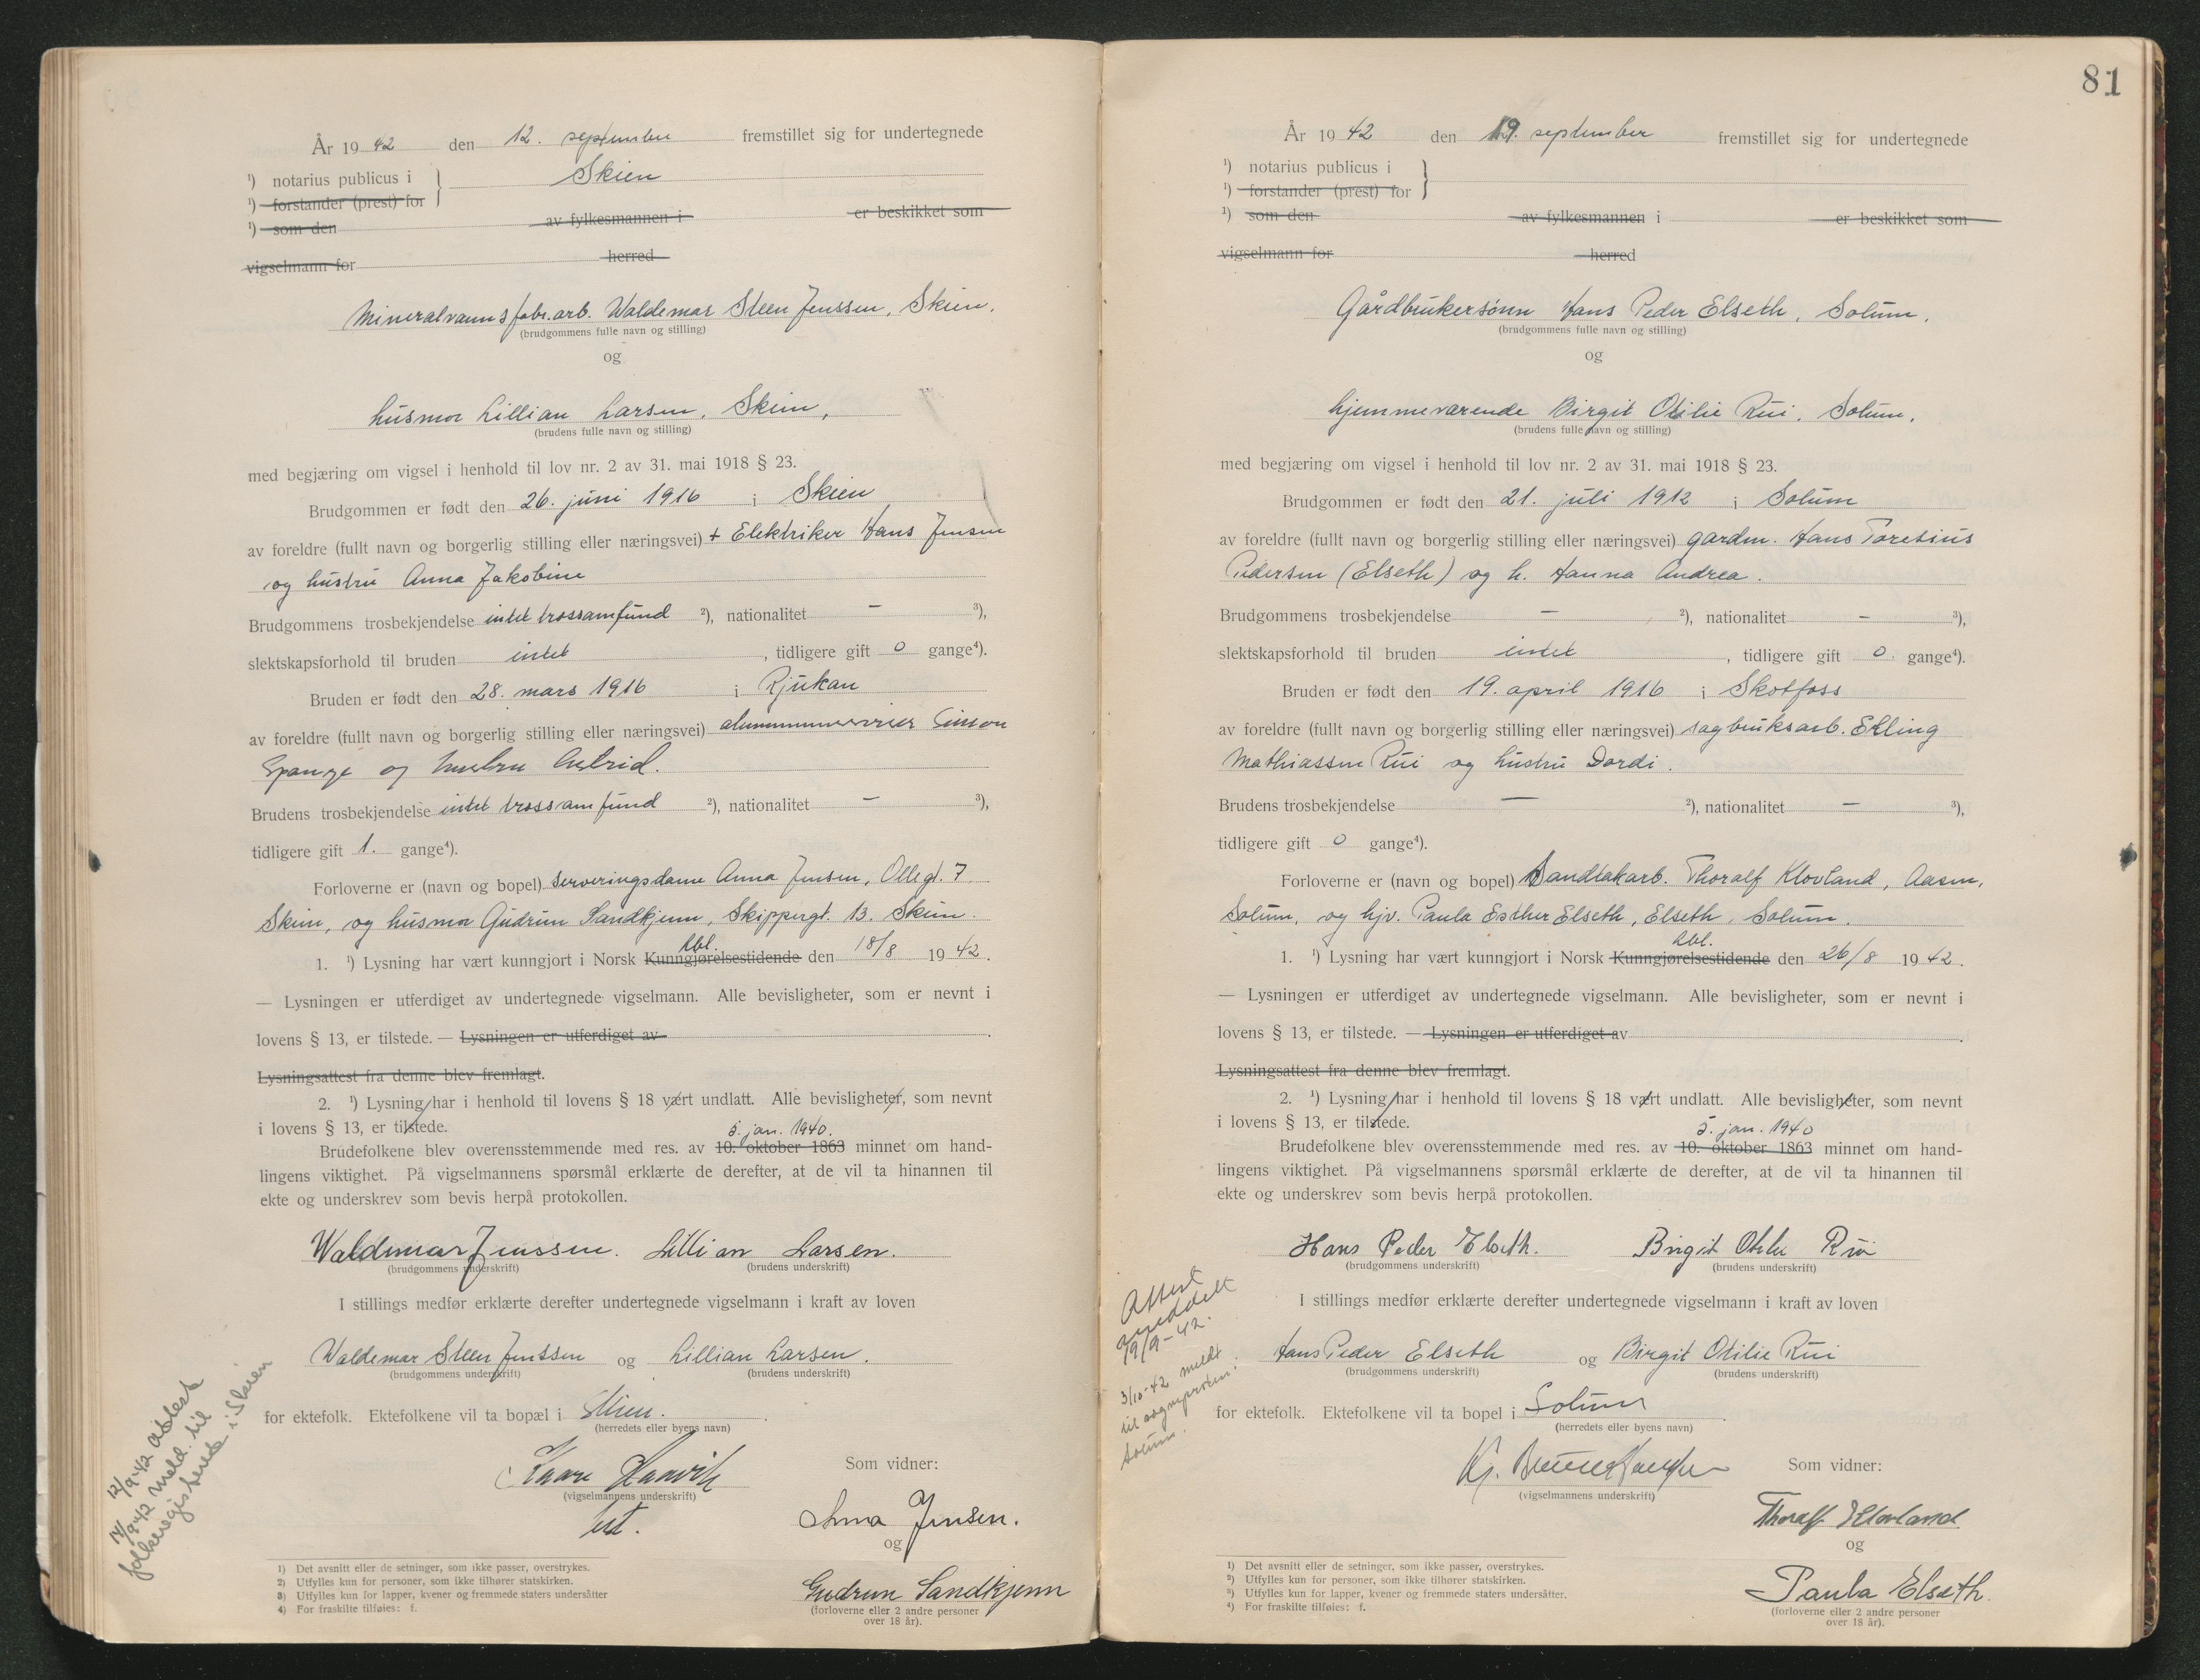 År 19 42 den 12. september fremstillet sig for undertegnede
¹) notarius publicus i Skien
¹) forstander (prest) for
¹) som den av fylkesmannen i er beskikket som
vigselmann for herred
Mineralvannsfabr.arb. Waldemar Steen Jenssen, Skien.
(brudgommens fulle navn og stilling)
og
husmor Lillian Larsen, Skien,
(brudens fulle navn og stilling)
med begjæring om vigsel i henhold til lov nr. 2 av 31. mai 1918 § 23.
Brudgommen er født den 26. juni 1916 i Skien
av foreldre (fullt navn og borgerlig stilling eller næringsvei) + Elektriker Hans Jensen
og hustru Anna Jakobine
Brudgommens trosbekjendelse intet trossamfund ²), nationalitet — ³),
slektskapsforhold til bruden intet , tidligere gift 0 gange⁴).
Bruden er født den 28. mars 1916 i Rjukan
av foreldre (fullt navn og borgerlig stilling eller næringsvei) Simon
Spange og hustru Astrid.
Brudens trosbekjendelse intet trossamfund ²), nationalitet — ³),
tidligere gift 1. gange⁴).
Forloverne er (navn og bopel) Serveringsdame Anna Jensen, Ollegt. 7
Skien, og husmor Gudrun Sandkjenn, Skippergt. 13. Skien.
kbl.
1. ¹) Lysning har vært kunngjort i Norsk Kunngjørelsestidende den 18/8 19 42.
— Lysningen er utferdiget av undertegnede vigselmann. Alle bevisligheter, som er nevnt i
lovens § 13, er tilstede. — Lysningen er utferdiget av .
Lysningsattest fra denne blev fremlagt.
2. ¹) Lysning har i henhold til lovens § 18 vært undlatt. Alle bevisligheter, som nevnt
i lovens § 13, er tilstede.
5. jan. 1940.
Brudefolkene blev overensstemmende med res. av 10. oktober 1863 minnet om hand-
lingens viktighet. På vigselmannens spørsmål erklærte de derefter, at de vil ta hinannen til
ekte og underskrev som bevis herpå protokollen.
Waldemar Jenssen. Lillian Larsen.
(brudgommens underskrift) (brudens underskrift)
I stillings medfør erklærte derefter undertegnede vigselmann i kraft av loven
Waldemar Steen Jenssen og Lillian Larsen.
(brudgommens underskrift) (brudens underskrift)
for ektefolk. Ektefolkene vil ta bopæl i Skien.
(herredets eller byens navn)
Kaare Haavik Som vidner:
(vigselmannens underskrift)
Anna Jensen.
og
Gudrun Sandkjenn
(forloverne eller 2 andre personer
over 18 år).
12/9-42 attest
14/9-42 meld. til
folkeregisteret i Skien
1) Det avsnitt eller de setninger, som ikke passer, overstrykes.
2) Utfylles kun for personer, som ikke tilhører statskirken.
3) Utfylles kun for lapper, kvener og fremmede staters undersåtter
4) For fraskilte tilføies: f.
81
År 19 42 den 19. september fremstillet sig for undertegnede
¹) notarius publicus i
¹) forstander (prest) for
¹) som den av fylkesmannen i er beskikket som
vigselmann for herred
Gårdbrukersønn Hans Peder Elseth, Solum,
(brudgommens fulle navn og stilling)
og
hjemmeværende Birgit Otilie Rui, Solum,
(brudens fulle navn og stilling)
med begjæring om vigsel i henhold til lov nr. 2 av 31. mai 1918 § 23.
Brudgommen er født den 21. juli 1912 i Solum
av foreldre (fullt navn og borgerlig stilling eller næringsvei) gardm. Hans Toresius
Pedersen (Elseth) og h. Hanna Andrea.
Brudgommens trosbekjendelse — ²), nationalitet — ³),
slektskapsforhold til bruden intet , tidligere gift 0. gange⁴).
Bruden er født den 19. april 1916 i Skotfoss
av foreldre (fullt navn og borgerlig stilling eller næringsvei) sagbruksarb. Elling
Mathiassen Rui og hustru Dordi.
Brudens trosbekjendelse — ²), nationalitet — ³),
tidligere gift 0 gange⁴).
Forloverne er (navn og bopel) Sandtakarb. Thoralf Klovland, Aasen,
Solum, og hjv. Paula Esther Elseth, Elseth, Solum.
kbl.
1. ¹) Lysning har vært kunngjort i Norsk Kunngjørelsestidende den 26/8 19 42.
— Lysningen er utferdiget av undertegnede vigselmann. Alle bevisligheter, som er nevnt i
lovens § 13, er tilstede. — Lysningen er utferdiget av .
Lysningsattest fra denne blev fremlagt.
2. ¹) Lysning har i henhold til lovens § 18 vært undlatt. Alle bevisligheter, som nevnt
i lovens § 13, er tilstede.
5. jan. 1940
Brudefolkene blev overensstemmende med res. av 10. oktober 1863 minnet om hand-
lingens viktighet. På vigselmannens spørsmål erklærte de derefter, at de vil ta hinannen til
ekte og underskrev som bevis herpå protokollen.
Hans Peder Elseth. Birgit Otilie Rui
(brudgommens underskrift) (brudens underskrift)
I stillings medfør erklærte derefter undertegnede vigselmann i kraft av loven
Hans Peder Elseth og Birgit Otilie Rui
(brudgommens underskrift) (brudens underskrift)
for ektefolk. Ektefolkene vil ta bopel i Solum
(herredets eller byens navn)
Som vidner:
(vigselmannens underskrift)
Thoralf Klovland
og
Paula Elseth.
(forloverne eller 2 andre personer
over 18 år).
Attest
meddelt
19/9-42.
3/10-42 meldt
til sogneprsten i
Solum.
¹) Det avsnitt eller de setninger, som ikke passer, overstrykes.
²) Utfylles kun for personer, som ikke tilhører statskirken.
³) Utfylles kun for lapper, kvener og fremmede staters undersåtter.
⁴) For fraskilte tilføies: f.